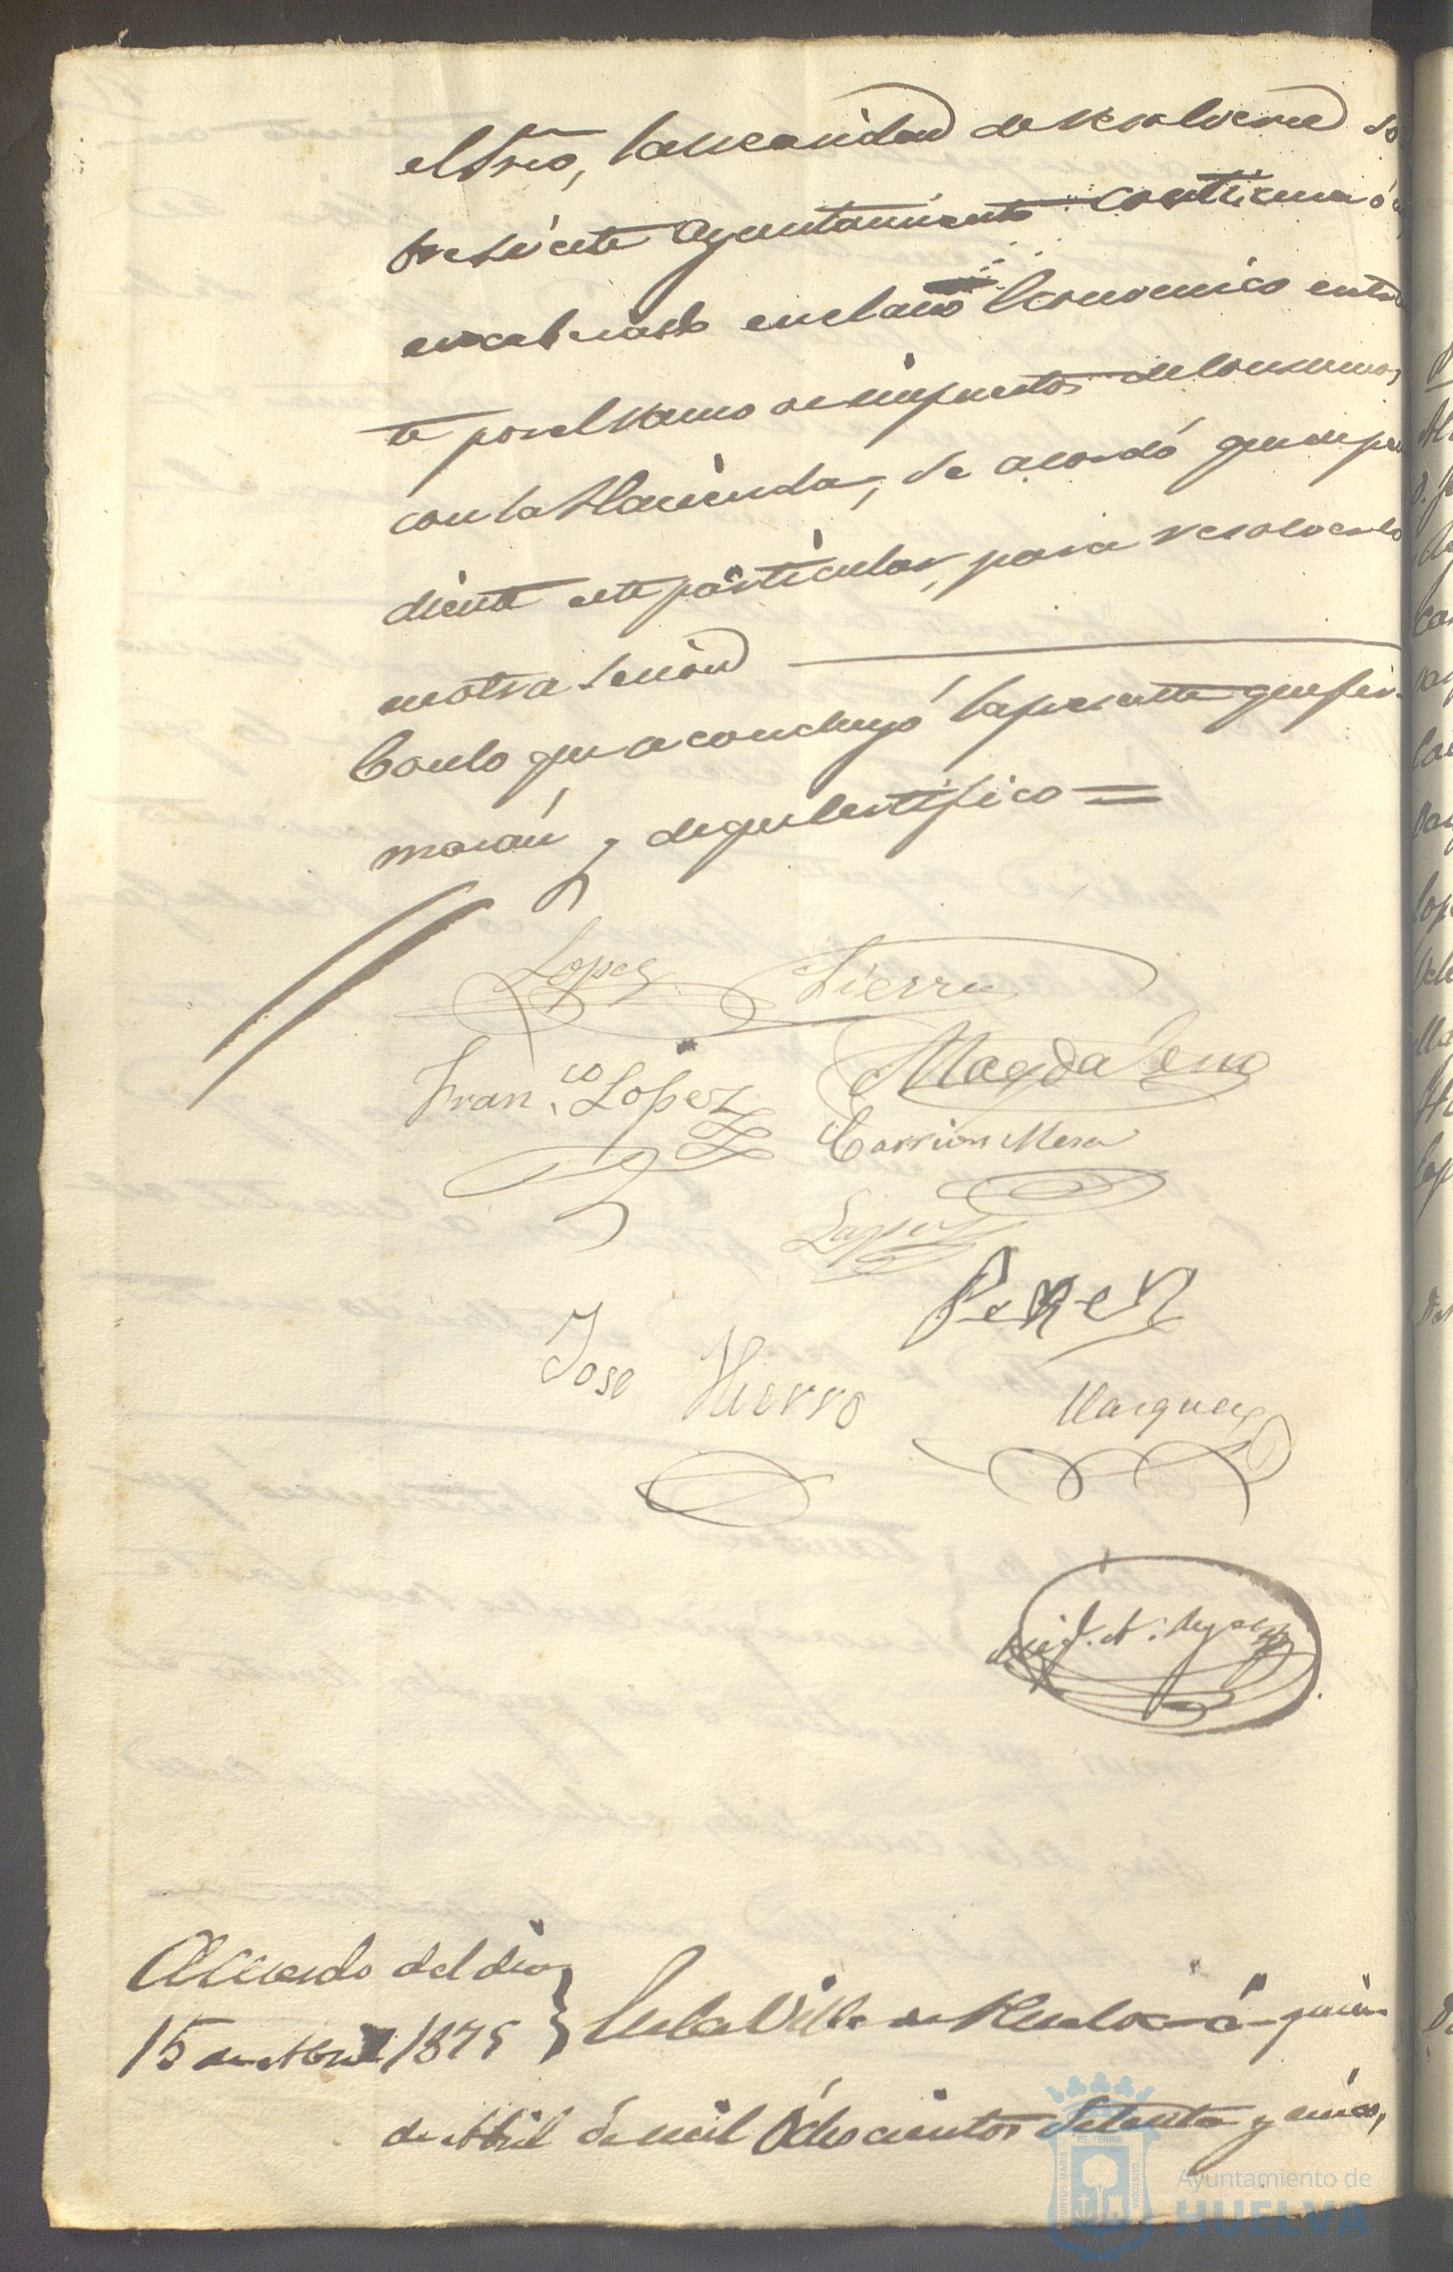 el Srio, la necesidad de resolverse so
bre si este Ayuntamiento continua ó no
encabezado en el año Economico entran
te por el ramo de impuestos de Consumos,
con la Hacienda, se acordó quede pen
diente este particular, para resolverlo
en otra sesion
Con lo que se concluyó la presente que fir-
marán, de que Certifico =
Lopez Sierra
Fran.co Lopez Magdaleno
Carrion Mesa
Lopez
Perez
Jose Hierro Marquez
Acuerdo del dia
15 de Abril 1875 } En la Villa de Huelva á quince
de Abril de mil ochocientos setenta y cinco,
PORTUS MARIS ET TERRAE CUSTODIA
Ayuntamiento de
HUELVA